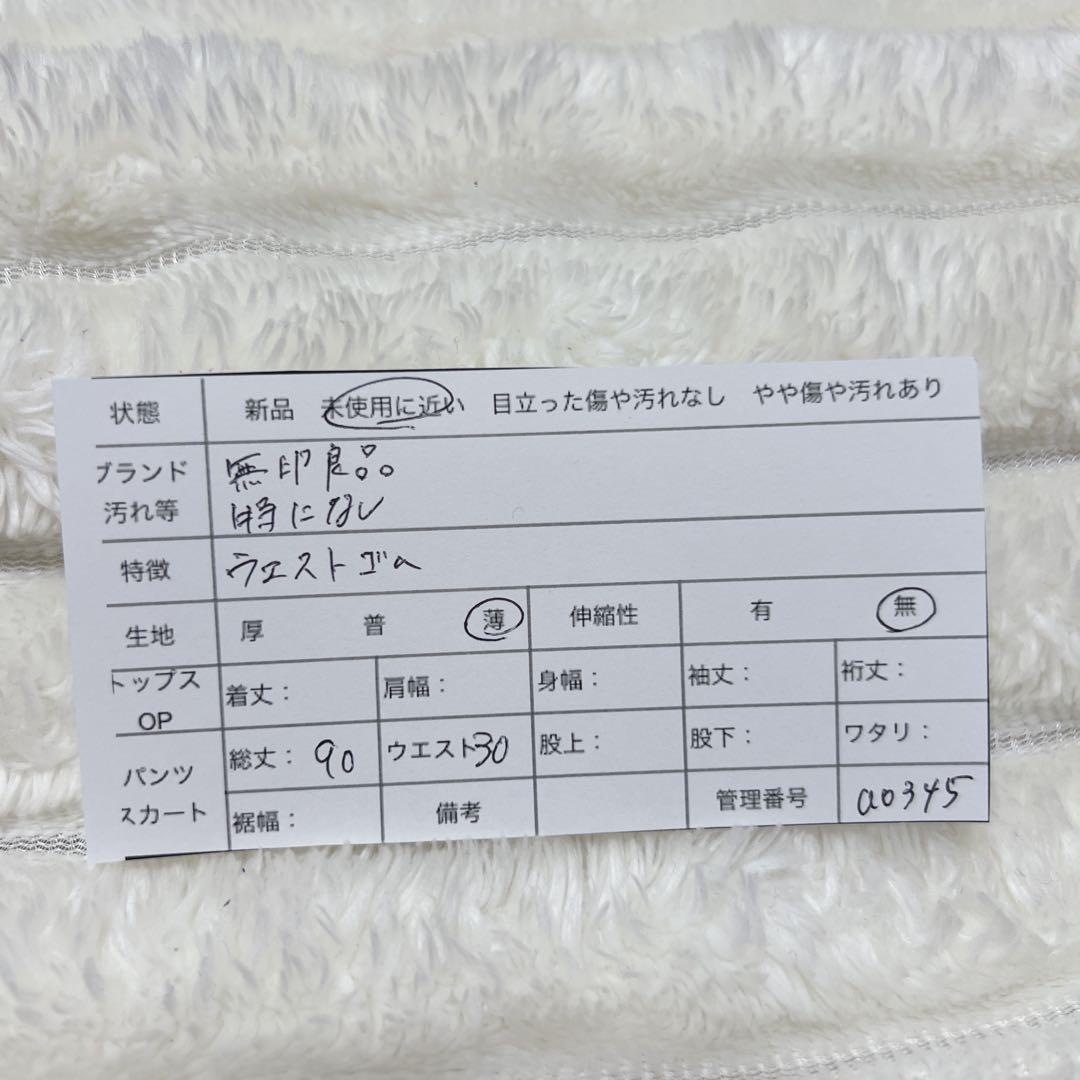 状態 新品 未使用に近い 目立った傷や汚れなし やや傷や汚れあり
ブランド 無印良品。
汚れ等 特になし
特徴 ウエストゴム
生地 厚 普 薄 伸縮性 有 無
トップス OP 着丈： 肩幅： 身幅： 袖丈： 裄丈：
パンツ スカート 総丈：90 ウエスト30 股上： 股下： ワタリ：
裾幅： 備考 管理番号 a0345